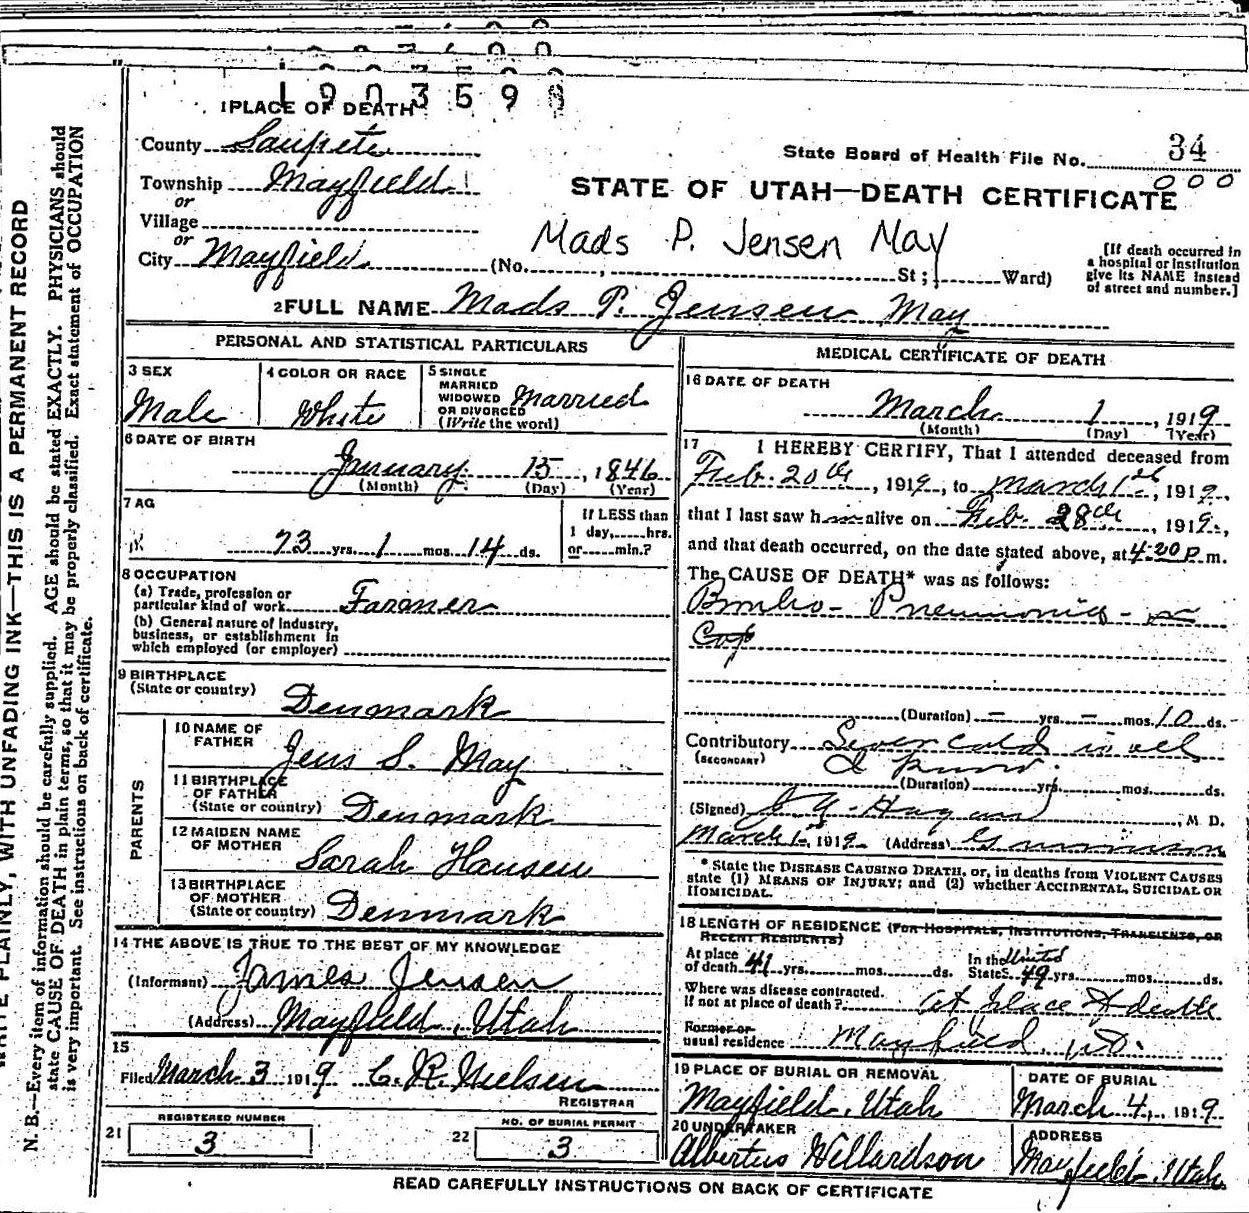 1903598
1 PLACE OF DEATH
County Sanpete
State Board of Health File No. 34
000
Township Mayfield
or
Village
or
City Mayfield
STATE OF UTAH—DEATH CERTIFICATE
Mads P. Jensen May
(No. , St; Ward)
[If death occurred in
a hospital or institution
give its NAME instead
of street and number.]
2 FULL NAME Mads P. Jensen May
PERSONAL AND STATISTICAL PARTICULARS
3 SEX
Male
4 COLOR OR RACE
White
5 SINGLE
MARRIED
WIDOWED
OR DIVORCED
(Write the word)
Married
6 DATE OF BIRTH
January 15, 1846
(Month) (Day) (Year)
7 AG
73 yrs. 1 mos. 14 ds.
If LESS than
1 day, hrs.
or min.?
8 OCCUPATION
(a) Trade, profession or
particular kind of work Farmer
(b) General nature of industry,
business, or establishment in
which employed (or employer)
9 BIRTHPLACE
(State or country)
Denmark
PARENTS
10 NAME OF
FATHER
Jens S. May
11 BIRTHPLACE
OF FATHER
(State or country) Denmark
12 MAIDEN NAME
OF MOTHER
Sarah Hansen
13 BIRTHPLACE
OF MOTHER
(State or country) Denmark
14 THE ABOVE IS TRUE TO THE BEST OF MY KNOWLEDGE
(Informant) James Jensen
(Address) Mayfield, Utah
15
Filed March 3 1919 C. R. Nielsen
REGISTRAR
REGISTERED NUMBER
21 3
NO. OF BURIAL PERMIT
22 3
MEDICAL CERTIFICATE OF DEATH
16 DATE OF DEATH
March 1, 1919
(Month) (Day) (Year)
17 I HEREBY CERTIFY, That I attended deceased from
Feb. 20th, 1919, to March 1st, 1919,
that I last saw him alive on Feb. 28th, 1919,
and that death occurred, on the date stated above, at 4-20 P. m.
The CAUSE OF DEATH* was as follows:
Broncho- Pneumonia -
(Duration) – yrs. – mos. 10 ds.
Contributory
(SECONDARY)
(Duration) yrs. mos. ds.
(Signed) , M D.
March 1st, 1919 (Address) Gunnison
* State the DISEASE CAUSING DEATH, or, in deaths from VIOLENT CAUSES
state (1) MEANS OF INJURY; and (2) whether ACCIDENTAL, SUICIDAL OR
HOMICIDAL.
18 LENGTH OF RESIDENCE (FOR HOSPITALS, INSTITUTIONS, TRANSIENTS, OR
RECENT RESIDENTS)
At place
of death 41 yrs. mos. ds.
In the United
States 49 yrs. mos. ds.
Where was disease contracted.
if not at place of death?: at place of death
Former or
usual residence Mayfield, Ut.
19 PLACE OF BURIAL OR REMOVAL
Mayfield, Utah
DATE OF BURIAL
March 4, 1919
20 UNDERTAKER
Albertus Willardson
ADDRESS
Mayfield, Utah
READ CAREFULLY INSTRUCTIONS ON BACK OF CERTIFICATE
WRITE PLAINLY, WITH UNFADING INK—THIS IS A PERMANENT RECORD
N. B.—Every item of information should be carefully supplied. AGE should be stated EXACTLY. PHYSICIANS should
state CAUSE OF DEATH in plain terms, so that it may be properly classified. Exact statement of OCCUPATION
is very important. See instructions on back of certificate.